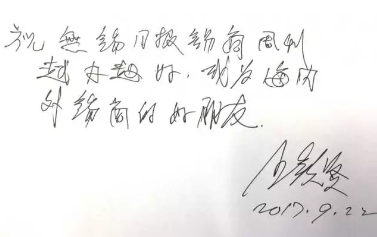 祝无锡日报锡商周刊
越办越好，成为海内
外锡商的好朋友.
2017.9.22